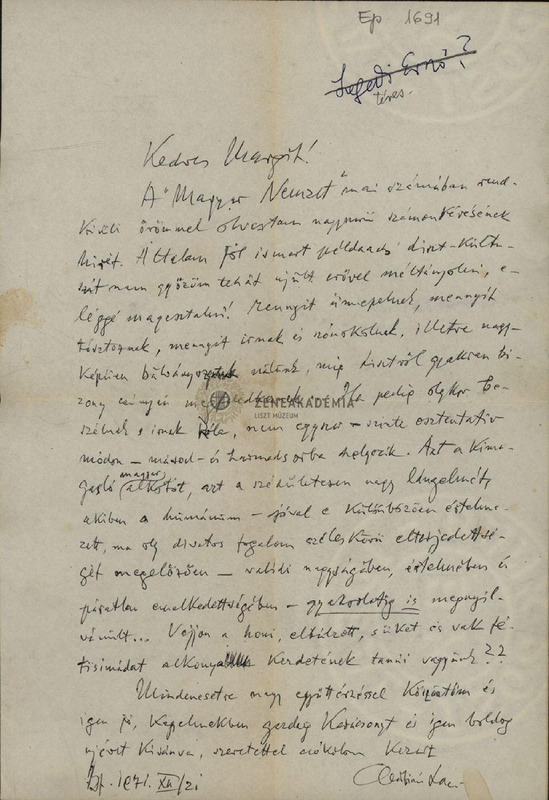 Ep 1691
Szegedi Ernő?
téves.
Kedves Margit!
A "Magyar Nemzet" mai számában rend-
kívüli örömmel olvastam nagyszerű számonkérésének
hírét. Általam jól ismert példaadó Liszt-kultu-
szát nem győzöm tehát ujult erővel méltányolni, e-
léggé magasztalni! Mennyit ünnepelnek, mennyit
írnak és szónokolnak, illetve nagy-
képüen nálunk, míg Lisztről gyakran bi-
zony csúnyán
ZENEAKADÉMIA
LISZT MÚZEUM
Ha pedig olykor be-
szélnek s írnak róla, nem egyszer – szinte osztentatív
módon – másod- és harmadsorba helyezik. Azt a kima-
gasló magyar alkotót, azt a szédületesen nagy lángelmét,
akiben a humánum – jóval e különbözően értelme-
zett, ma oly divatos fogalom széleskörü elterjedettsé-
gét megelőzően – valódi nagyságában, értelmében és
páratlan emelkedettségében – gyakorlatig is megnyil-
vánult... Vajjon a honi, elbúzott, süket és vak fé-
tisimádat alkonya kezdetének tanúi vagyunk??
Mindenesetre nagy együttérzéssel köszöntöm és
igen jó, kegyelmekben gazdag Karácsonyt és igen boldog
ujévet kívánva, szeretettel csókolom kezeit
Bp. 1971. XII/21